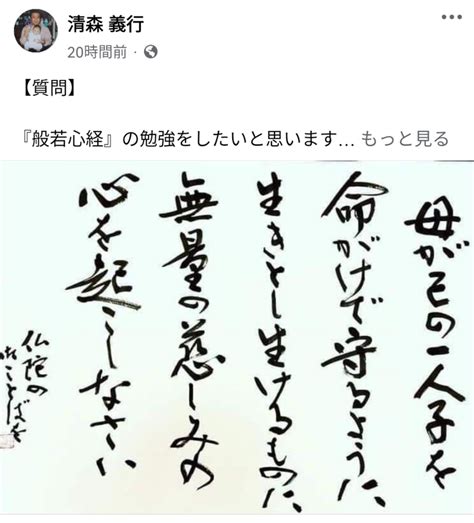 清森 義行
20時間前
【質問】
『般若心経』の勉強をしたいと思います... もっと見る
母が己の一人子を
命がけで守るように、
生きとし生けるものに、
無量の慈しみの
心を起こしなさい
仏陀の
みことばを